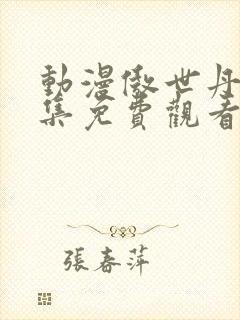 動漫傲世丹
集免費觀看
張春萍